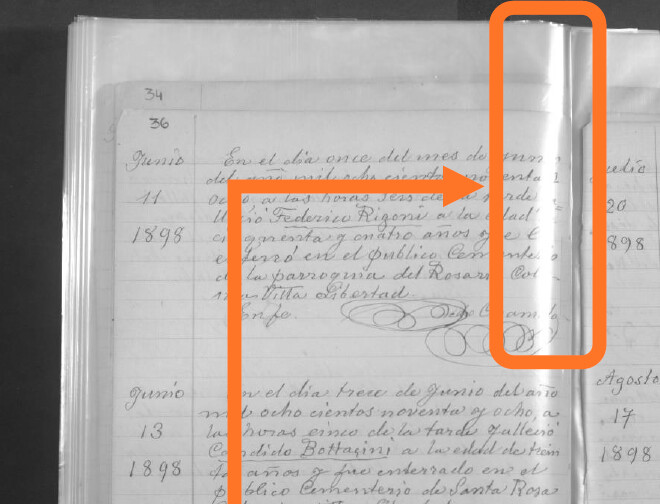 34
36
Junio
11
1898
En el dia once del mes de
del año mil ocho cientos noventa
ocho a las horas seis de la tarde
Federico Rigoni a la edad
cincuenta y cuatro años y
en el publico Cementerio
de la parroquia del Rosario
Villa Libertad.
En fe.
Junio
13
1898
En el dia trece de Junio del año
mil ocho cientos noventa y ocho, a
las horas cinco de la tarde
Candido Bottagini a la edad de
años y fue enterrado en el
publico Cementerio de Santa Rosa
20
898
Agosto
17
1898